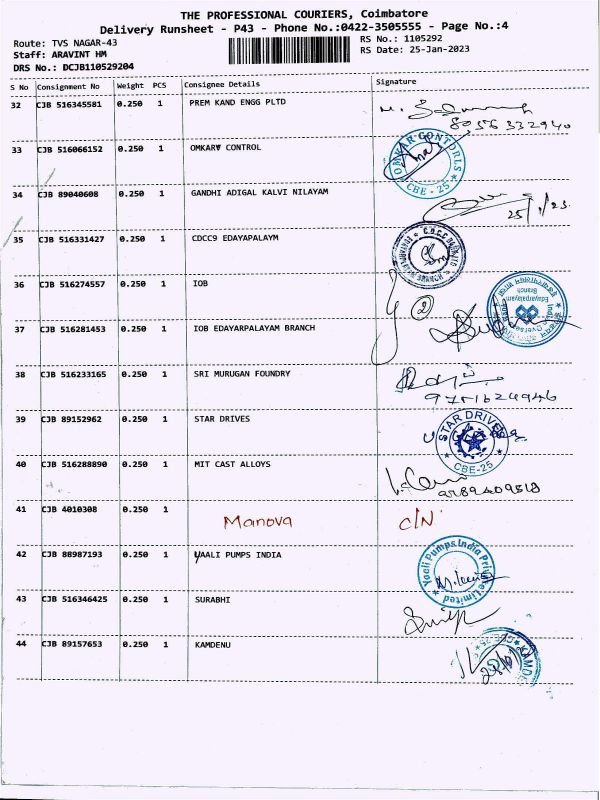 THE PROFESSIONAL COURIERS, Coimbatore
Delivery Runsheet - P43 - Phone No.:0422-3505555 - Page No.:4
Route: TVS NAGAR-43 RS No.: 1105292
Staff: ARAVINT HM RS Date: 25-Jan-2023
DRS No.: DCJB110529204
S No Consignment No Weight PCS Consignee Details Signature
32 CJB 516345581 0.250 1 PREM KAND ENGG PLTD
8056332940
33 CJB 516066152 0.250 1 OMKARV CONTROL
OMKAR CONTORLS
CBE - 25
34 CJB 89040608 0.250 1 GANDHI ADIGAL KALVI NILAYAM
25/1/23
35 CJB 516331427 0.250 1 CDCC9 EDAYAPALAYM
36 CJB 516274557 0.250 1 IOB
2
Edayarpalayam
Branch
37 CJB 516281453 0.250 1 IOB EDAYARPALAYAM BRANCH
38 CJB 516233165 0.250 1 SRI MURUGAN FOUNDRY
9751624946
39 CJB 89152962 0.250 1 STAR DRIVES
STAR DRIVES
CBE-25
40 CJB 516288890 0.250 1 MIT CAST ALLOYS
41 CJB 4010308 0.250 1 Manova C/N
42 CJB 88987193 0.250 1 YAALI PUMPS INDIA
Yaali Pumps India Private Limited
43 CJB 516346425 0.250 1 SURABHI
44 CJB 89157653 0.250 1 KAMDENU